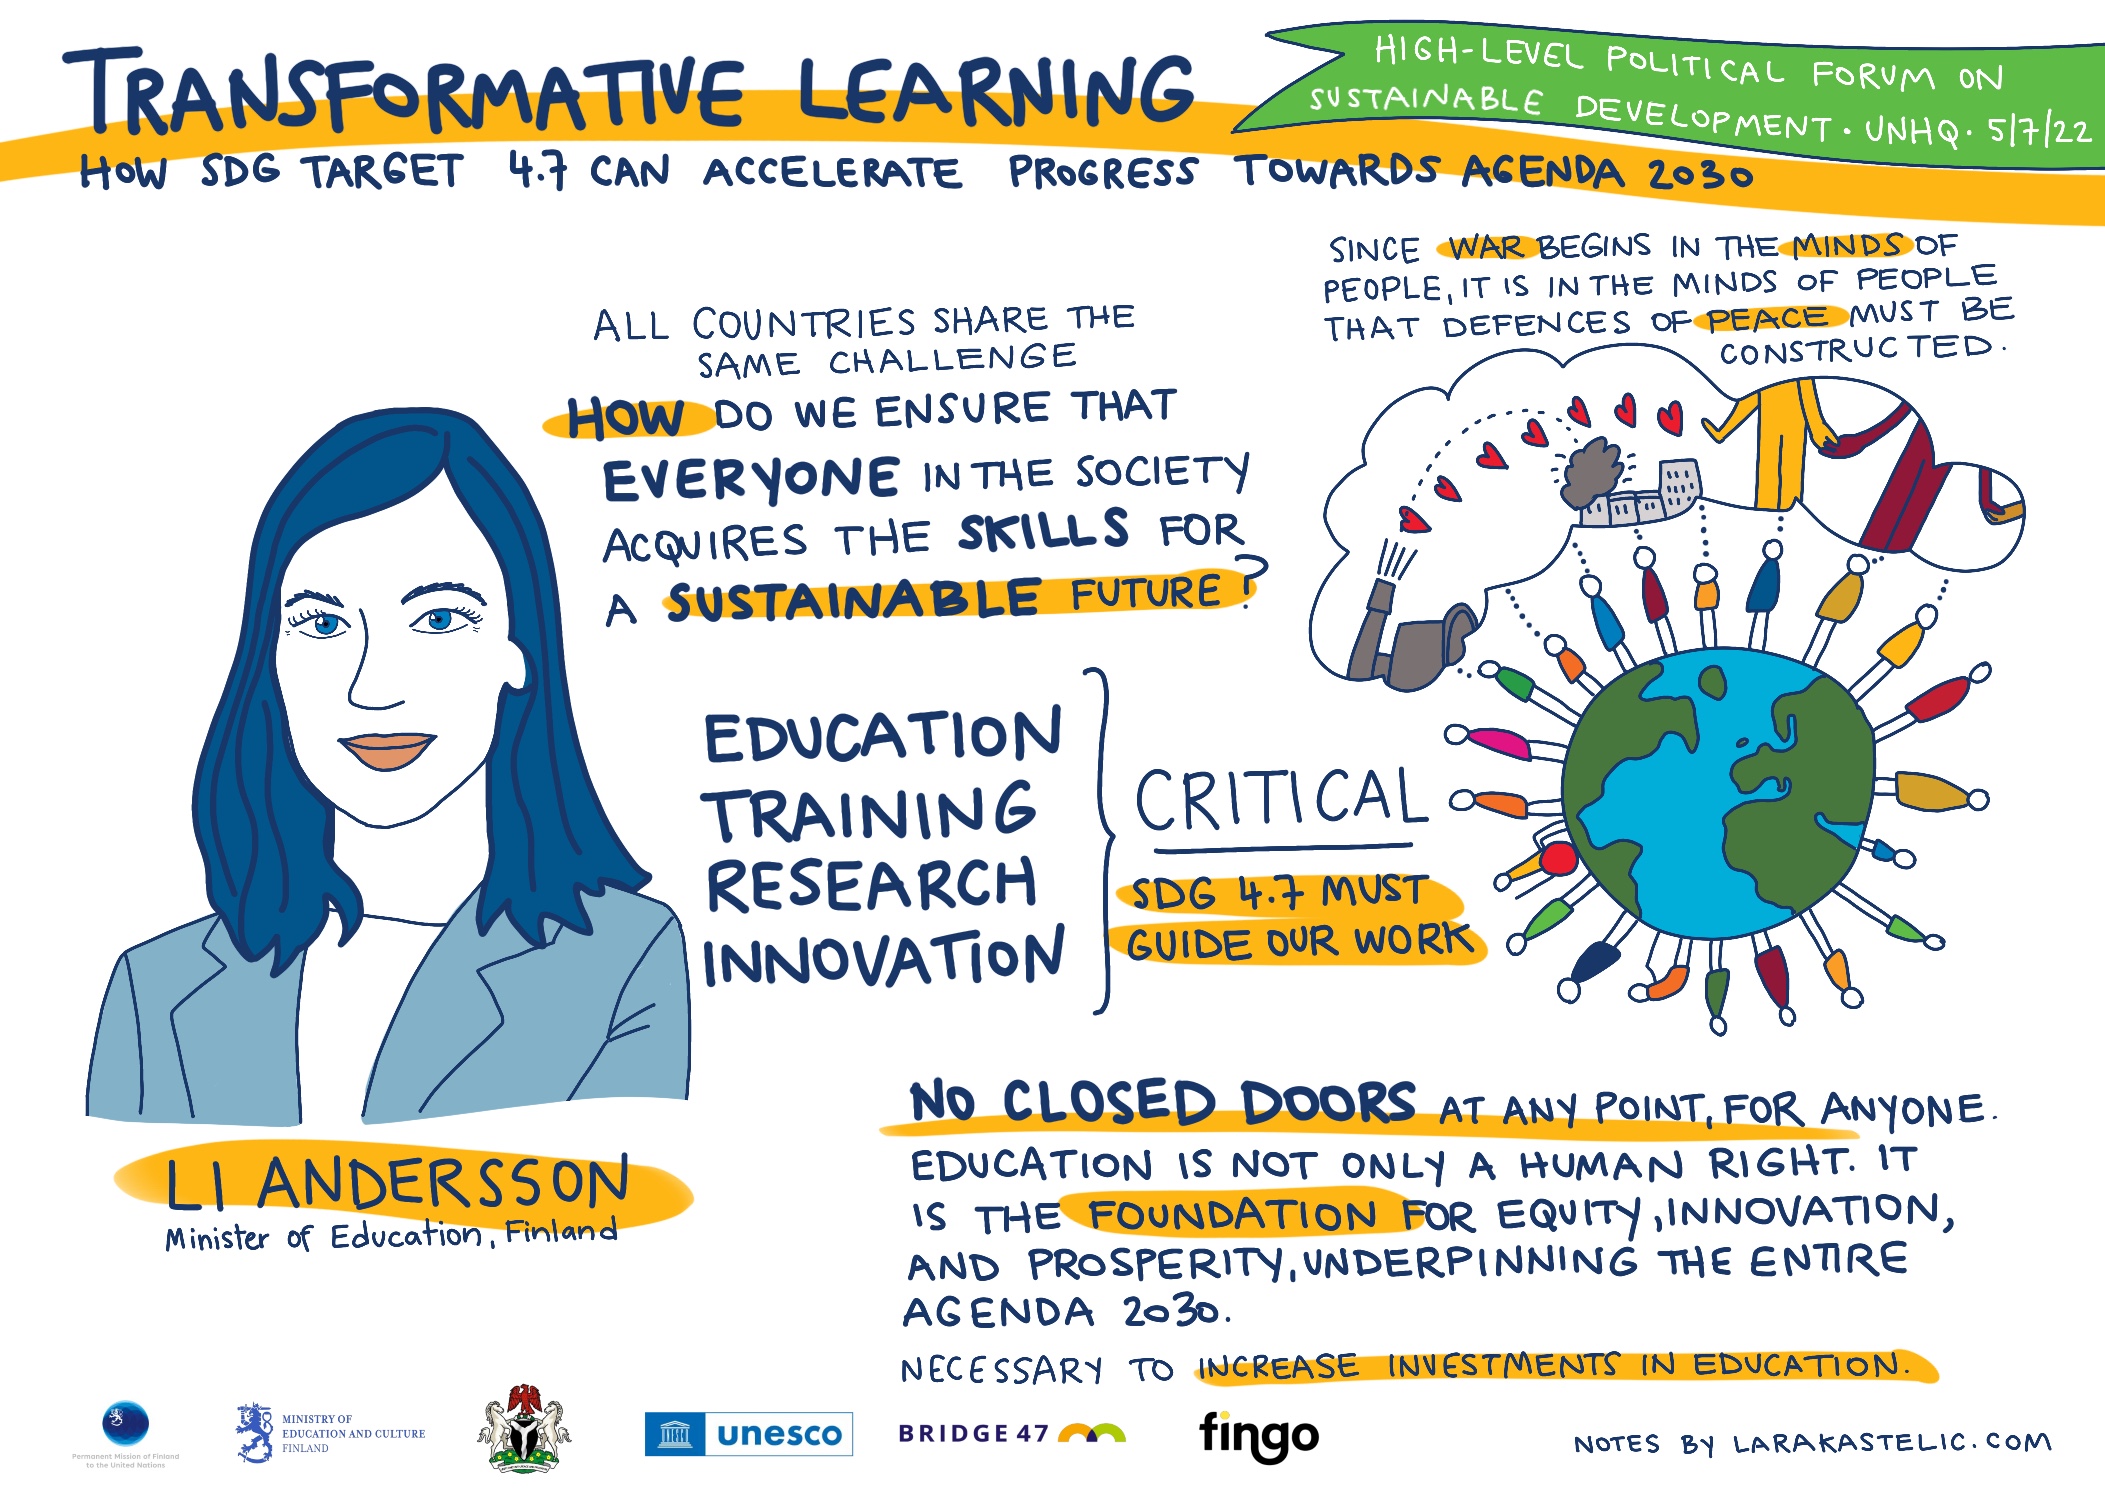 TRANSFORMATIVE LEARNING
HIGH-LEVEL POLITICAL FORUM ON
SUSTAINABLE DEVELOPMENT · UNHQ · 5/7/22
HOW SDG TARGET 4.7 CAN ACCELERATE PROGRESS TOWARDS AGENDA 2030
SINCE WAR BEGINS IN THE MINDS OF
PEOPLE, IT IS IN THE MINDS OF PEOPLE
THAT DEFENCES OF PEACE MUST BE
CONSTRUCTED.
ALL COUNTRIES SHARE THE
SAME CHALLENGE
HOW DO WE ENSURE THAT
EVERYONE IN THE SOCIETY
ACQUIRES THE SKILLS FOR
A SUSTAINABLE FUTURE?
EDUCATION
TRAINING
RESEARCH
INNOVATION
CRITICAL
SDG 4.7 MUST
GUIDE OUR WORK
LI ANDERSSON
Minister of Education, Finland
NO CLOSED DOORS AT ANY POINT, FOR ANYONE.
EDUCATION IS NOT ONLY A HUMAN RIGHT. IT
IS THE FOUNDATION FOR EQUITY, INNOVATION,
AND PROSPERITY, UNDERPINNING THE ENTIRE
AGENDA 2030.
NECESSARY TO INCREASE INVESTMENTS IN EDUCATION.
Permanent Mission of Finland
to the United Nations
MINISTRY OF
EDUCATION AND CULTURE
FINLAND
unesco
BRIDGE 47
fingo
NOTES BY LARAKASTELIC.COM